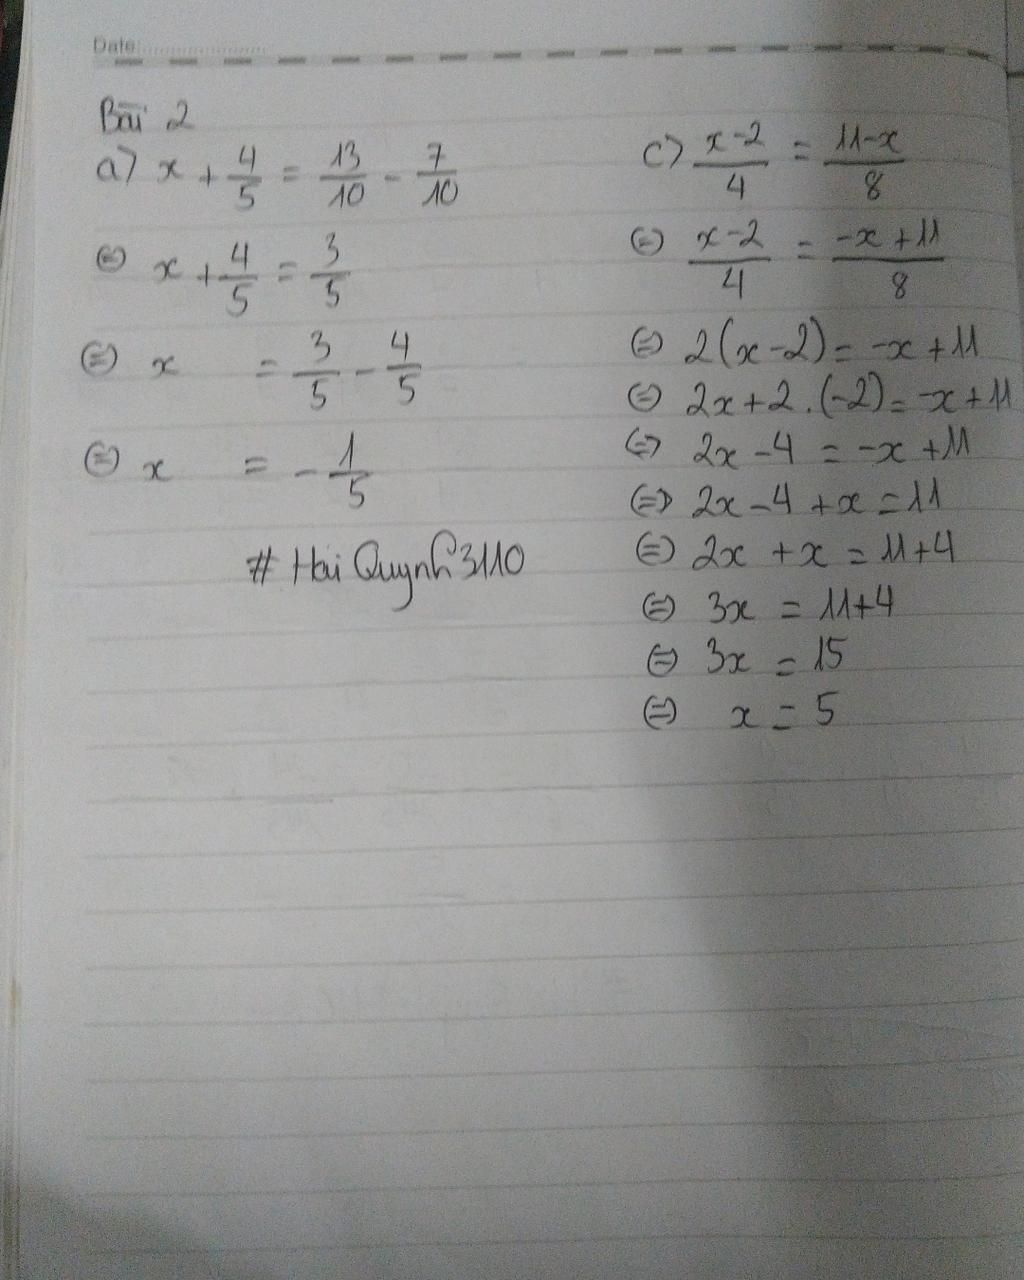 Date:
Bài 2
a) x + 4/5 = 13/10 - 7/10
⇔ x + 4/5 = 3/5
⇔ x = 3/5 - 4/5
⇔ x = - 1/5
# Hải Quỳnh 3110
c) x-2/4 = 11-x/8
⇔ x-2/4 = -x+11/8
⇔ 2(x-2) = -x+11
⇔ 2x+2.(-2) = -x+11
⇔ 2x-4 = -x+11
⇔ 2x-4+x = 11
⇔ 2x+x = 11+4
⇔ 3x = 11+4
⇔ 3x = 15
⇔ x = 5